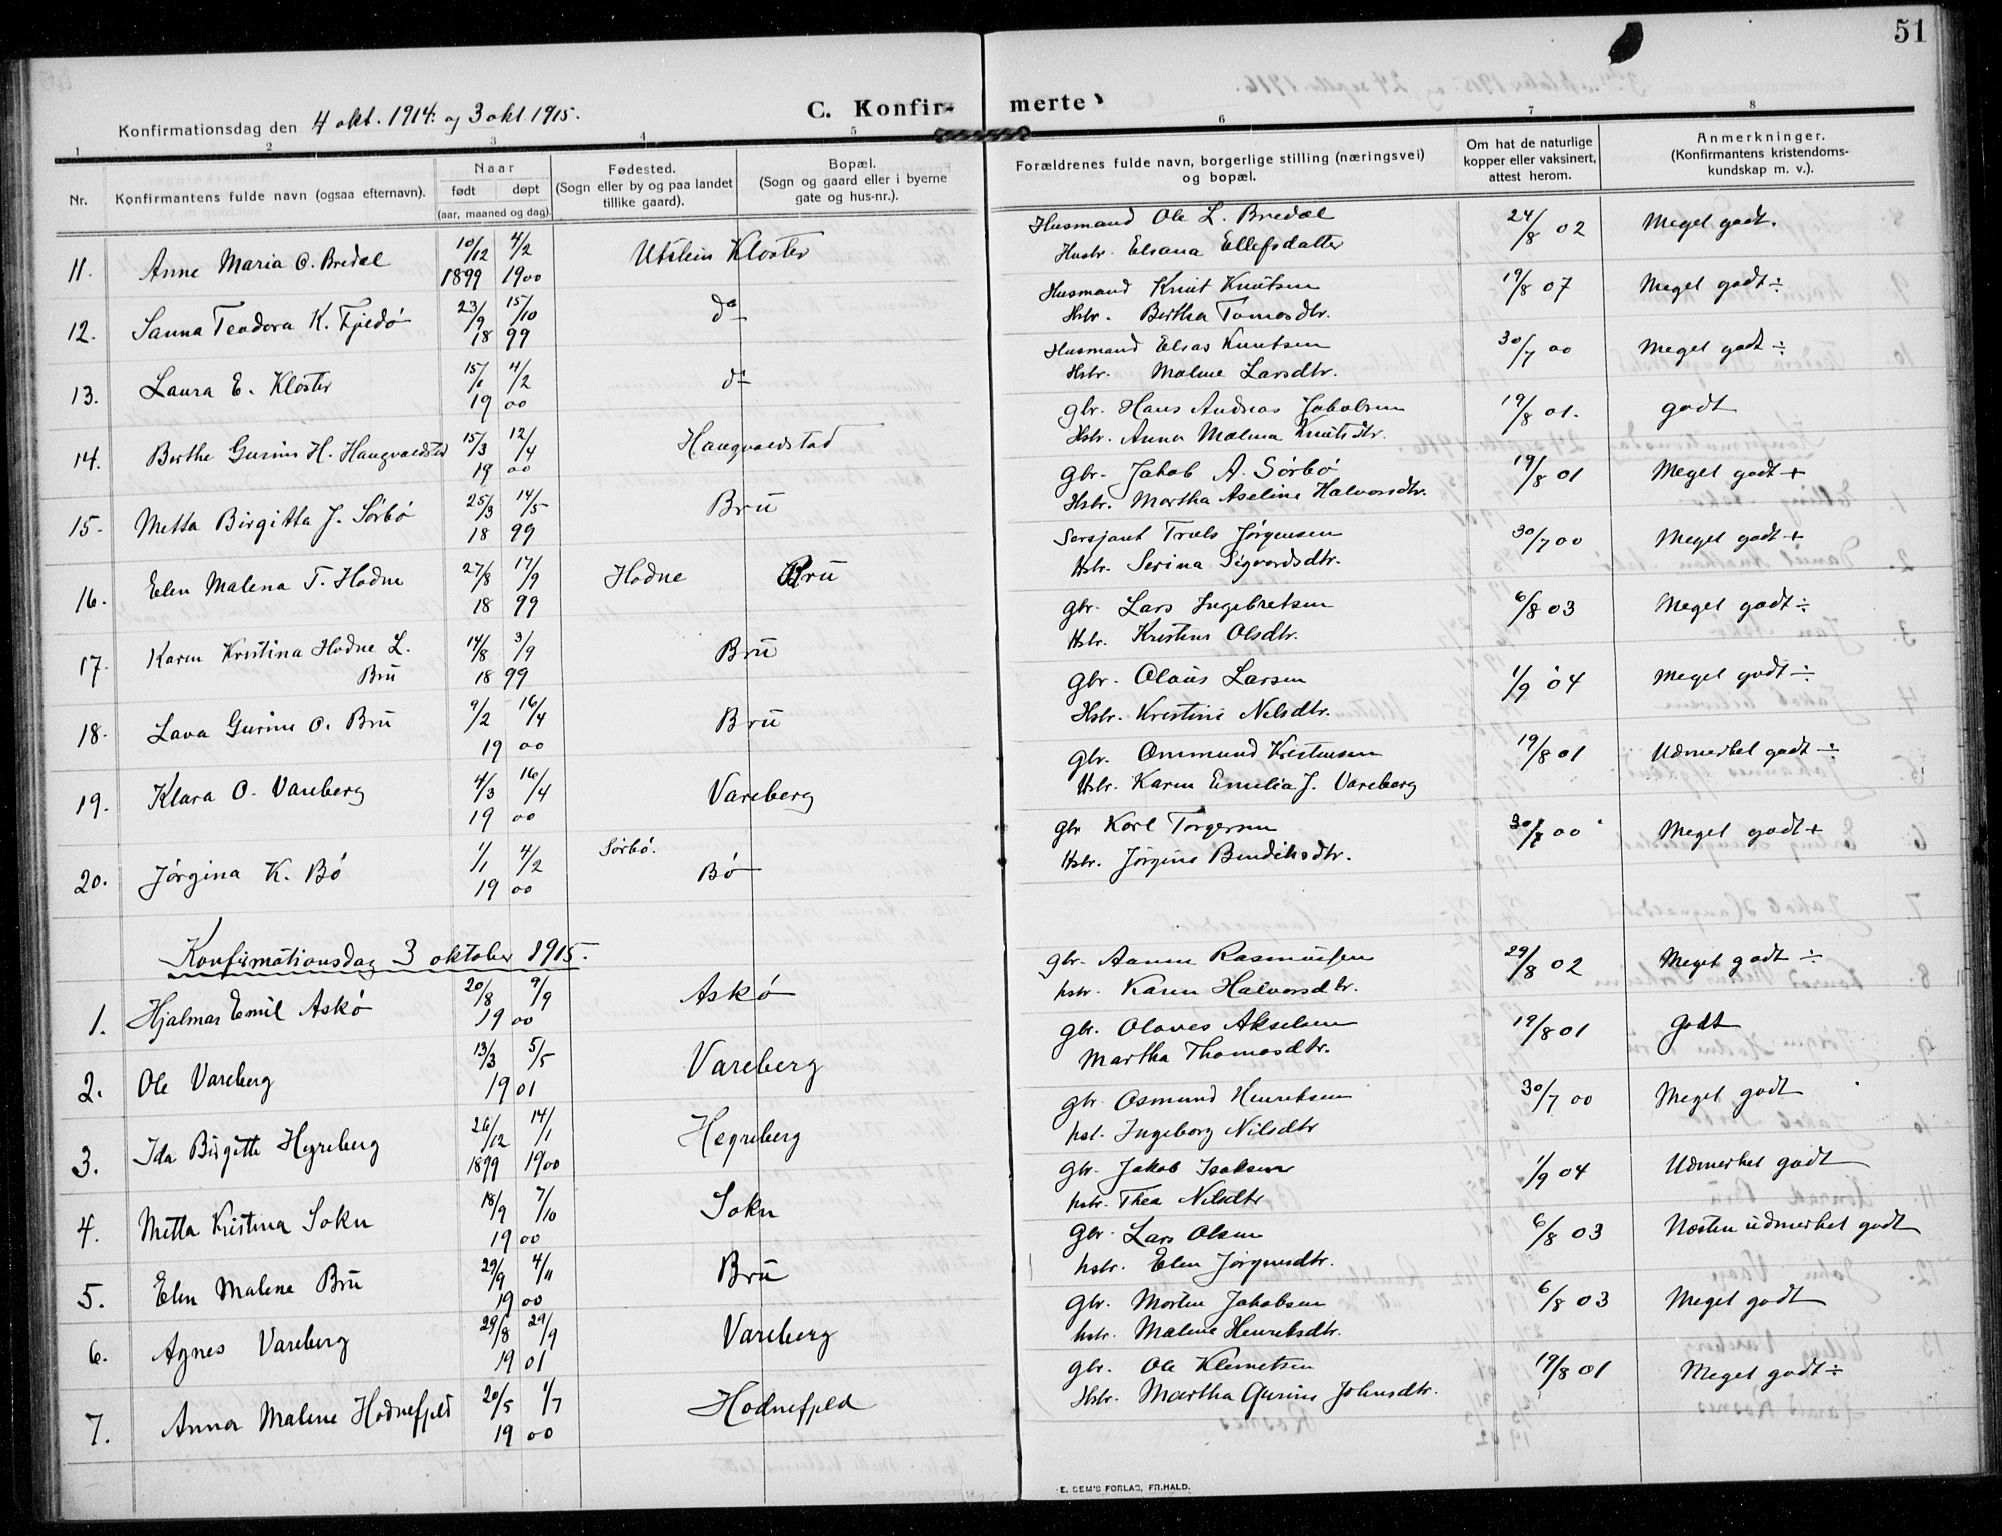 51
Konfirmationsdag den 4 okt. 1914. og 3 okt 1915.
C. Konfir- merte
1 2 3 4 5 6 7 8
Nr.
Konfirmantens fulde navn (ogsaa efternavn).
Naar
født døpt
(aar, maaned og dag).
Fødested.
(Sogn eller by og paa landet
tillike gaard).
Bopæl.
(Sogn og gaard eller i byerne
gate og hus-nr.).
Forældrenes fulde navn, borgerlige stilling (næringsvei)
og bopæl.
Om hat de naturlige
kopper eller vaksinert,
attest herom.
Anmerkninger.
(Konfirmantens kristendoms-
kundskap m. v.).
11. Anne Maria O. Bredal 10/12 1899 4/2 1900 Utstein Kloster
Husmand Ole L. Bredal 24/8 02 Meget godt.
Hustr. Elsana Ellefsdatter
12. Sanna Teodora K. Fjeldø 23/9 15/10 do
18 99
Husmand Knut Knutsen 19/8 07 Meget godt ÷
Hstr. Bertha Tomasdtr.
13. Laura E. Kloster 15/1 4/2 do
19 00
Husmand Elias Knutsen 30/7 00 Meget godt ÷
Hstr. Maline Larsdtr.
14. Berthe Gurine H. Haugvaldstad 15/3 12/4 Haugvaldstad
19 00
gbr. Hans Andreas Jakobsen 19/8 01. godt
Hstr. Anna Malena Knutsdtr.
15. Metta Birgitta J. Sørbø 25/3 14/5 Bru
18 99
gbr. Jakob A. Sørbø 19/8 01 Meget godt +
Hstr. Martha Aseline Halvorsdtr.
16. Elen Malena T. Hodne 27/8 17/9 Hodne Bru
18 99
Sersjant Truls Jørgensen 30/7 00 Meget godt +
Hstr. Serina Sigvardsdtr.
17. Karen Kristina Hodne L. 14/8 3/9 Bru
Bru 18 99
gbr. Lars Ingebretsen 6/8 03 Meget godt ÷
Hstr. Kristine Olsdtr.
18. Lava Gurine O. Bru 9/2 16/4 Bru
19 00
gbr. Olaus Larsen 1/9 04 Meget godt ÷
Hstr. Kristine Nelsdtr.
19. Klara O. Vareberg 4/3 16/4 Vareberg
19 00
gbr. Ommund Kristensen 19/8 01 Udmerket godt ÷
Hstr. Karen Emilia J. Vareberg
20. Jørgina K. Bø 1/1 4/2 Sørbø. Bø
19 00
gbr Karl Torgersen 30/7 00 Meget godt +
Hstr. Jørgine Bendiksdtr.
Konfirmationsdag 3 oktober 1915.
1. Hjalmar Emil Askø 20/8 9/9 Askø
19 00
gbr. Aanen Rasmussen 29/8 02 Meget godt ÷
hstr. Karen Halvorsdtr.
2. Ole Vareberg 13/3 5/5 Vareberg
19 01
gbr. Olaves Akselsen 19/8 01 godt
Martha Thomasdtr.
3. Ida Birgitte Hegreberg 26/12 14/1 Hegreberg
1899 1900
gbr. Osmund Henriksen 30/7 00 Meget godt
hst. Ingeborg Nilsdtr
4. Metta Kristina Sokn 18/9 7/10 Sokn
19 00
gbr. Jakob Isaksen 1/9 04 Udmerket godt
hstr. Thea Nilsdtr
5. Elen Malene Bru 29/9 4/11 Bru
19 00
gbr. Lars Olsen 6/8 03 Næsten udmerket godt
hstr. Elen Jørgensdtr.
6. Agnes Vareberg 29/8 29/9 Vareberg
19 01
gbr. Morten Jakobsen 6/8 03 Meget godt
hstr. Malene Henriksdtr.
7. Anna Malene Hodnefjeld 20/5 1/7 Hodnefjeld
19 00
gbr. Ole Klemetsen 19/8 01 Meget godt ÷
Hstr. Martha Gurine Johnsdtr.
E. SEM'S FORLAG, FR.HALD.